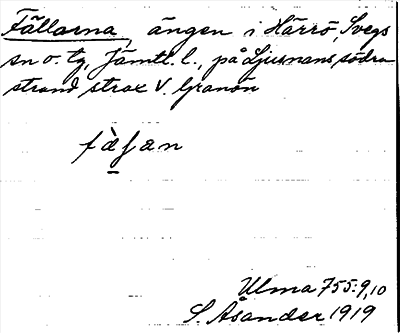 Fällarna, ängen i Härrö, Svegs
sn o. tg, Jämtl. l., på Ljusnans södra
strand strax V. Granön
Ulma 755:9,10
S. Åsander 1919